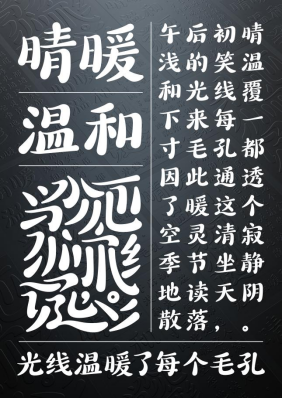 晴暖
温和
午后初晴
浅的笑温
和光线覆
下来每一
寸毛孔都
因此通透
了暖这个
空灵清寂
季节坐静
地读天阴
散落，。
光线温暖了每个毛孔